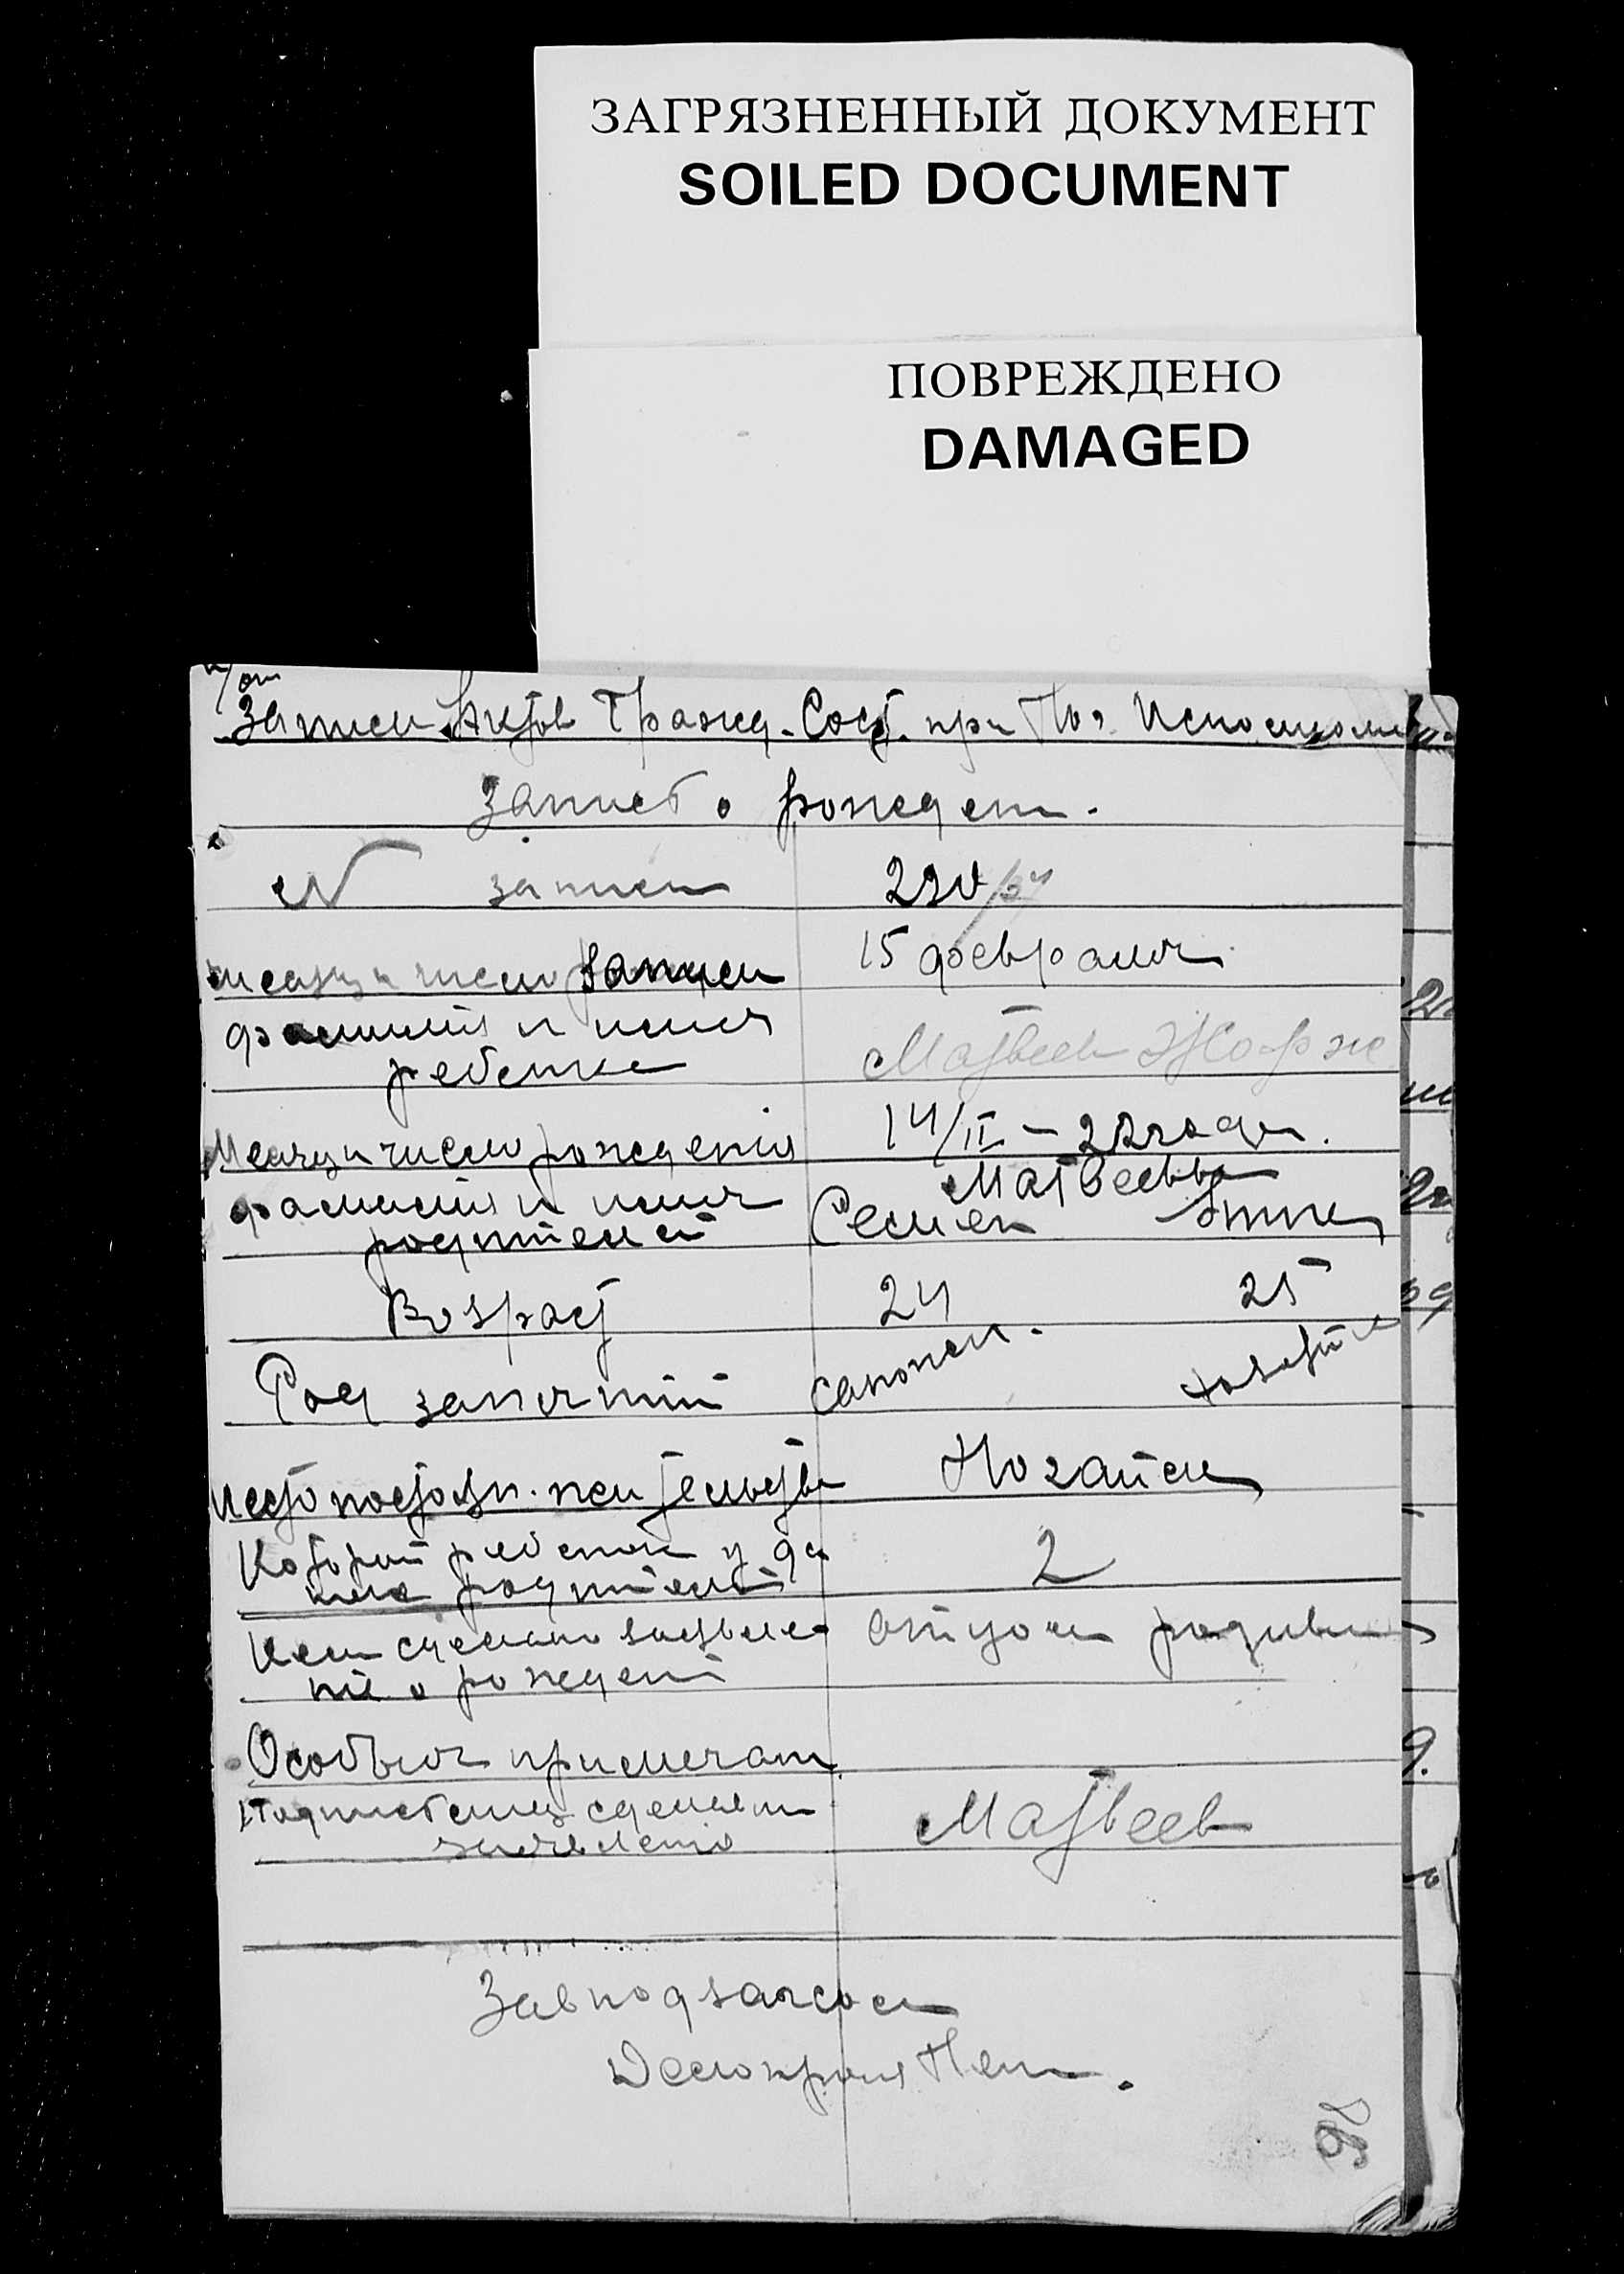 ЗАГРЯЗНЕННЫЙ ДОКУМЕНТ
SOILED DOCUMENT
ПОВРЕЖДЕНО
DAMAGED
п/от
Записи Актов Гражд. Сост. при Ног. Исполкоме
Запись о рожден.
№ записи 220/
месяц и число записи 15 февраля
фамилия и имя
ребенка Матвеев Жорж
Месяц и число рождения 14/II – 22 года.
фамилия и имя Матвеевы
родителей Семен
Возраст 24 25
Род занятий сапожн. хозяйка
место постоян. жительства Ногайск
Который ребенок у дан
ных родителей 2
Кем сделано заявле отцом
ние о рождении
Особыя примечан.
Подпись лиц сделавш
заявление Матвеев
Завподзагсом
Делопроизв
98